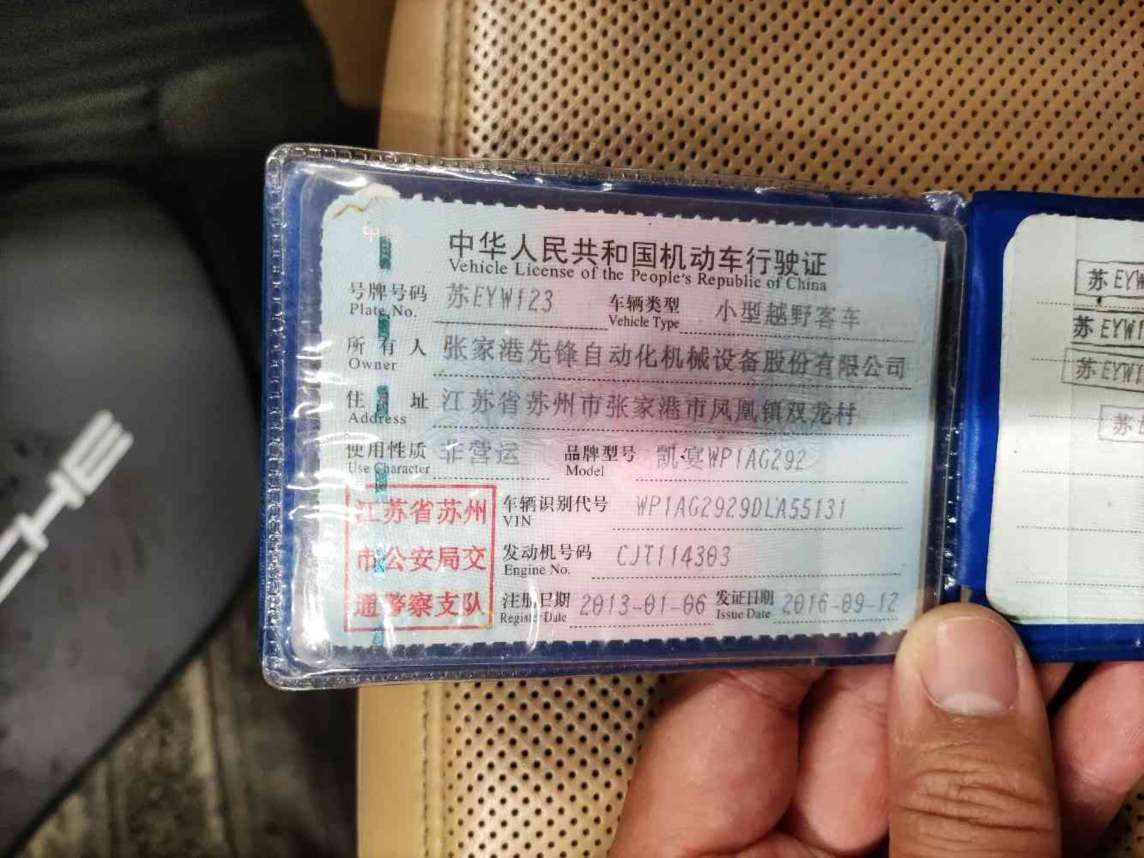 中华人民共和国机动车行驶证
Vehicle License of the People's Republic of China
号牌号码 苏EYW123 车辆类型 小型越野客车
Plate No. Vehicle Type
所有人 张家港先锋自动化机械设备股份有限公司
Owner
住址 江苏省苏州市张家港市凤凰镇双龙村
Address
使用性质 非营运 品牌型号 凯宴WP1AG292
Use Character Model
江苏省苏州
市公安局交
通警察支队
车辆识别代号 WP1AG2929DLA55131
VIN
发动机号码 CJT114303
Engine No.
注册日期 2013-01-06 发证日期 2016-09-12
Register Date Issue Date
苏EYW
苏EYW
苏EYW1
苏E